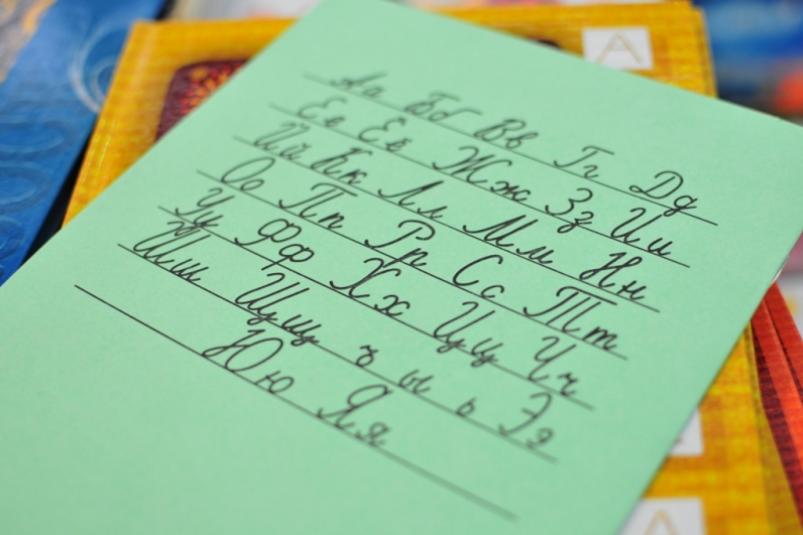 Аа Бб Вв Гг Дд
Ее Ёё Жж Зз Ии
Йй Кк Лл Мм Нн
Оо Пп Рр Сс Тт
Уу Фф Хх Цц Чч
Шш Щщ ъ ы ь Ээ
Юю Яя
А